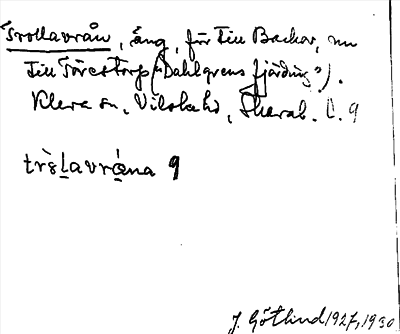 Trollavrån, äng, förr till Backor, nu
till Torestorp ("Dahlgrens fjärding").
Kleva sn, Vilske hd, Skarab. l. 9
trɷ̀lavrána 9
J. Götlind 1927, 1930